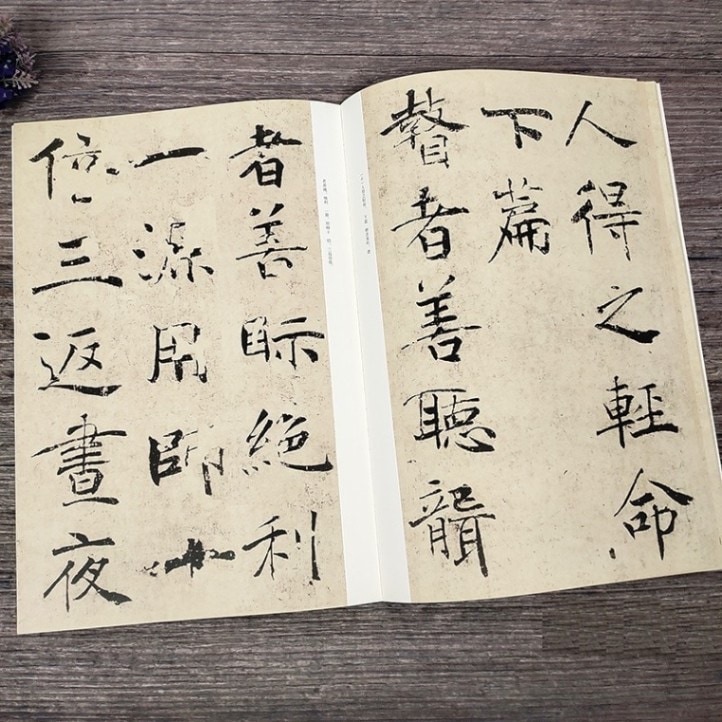 人得之輕命
下篇
瞽者善聽聾
者善眎絕利
一源用師十
倍三返晝夜